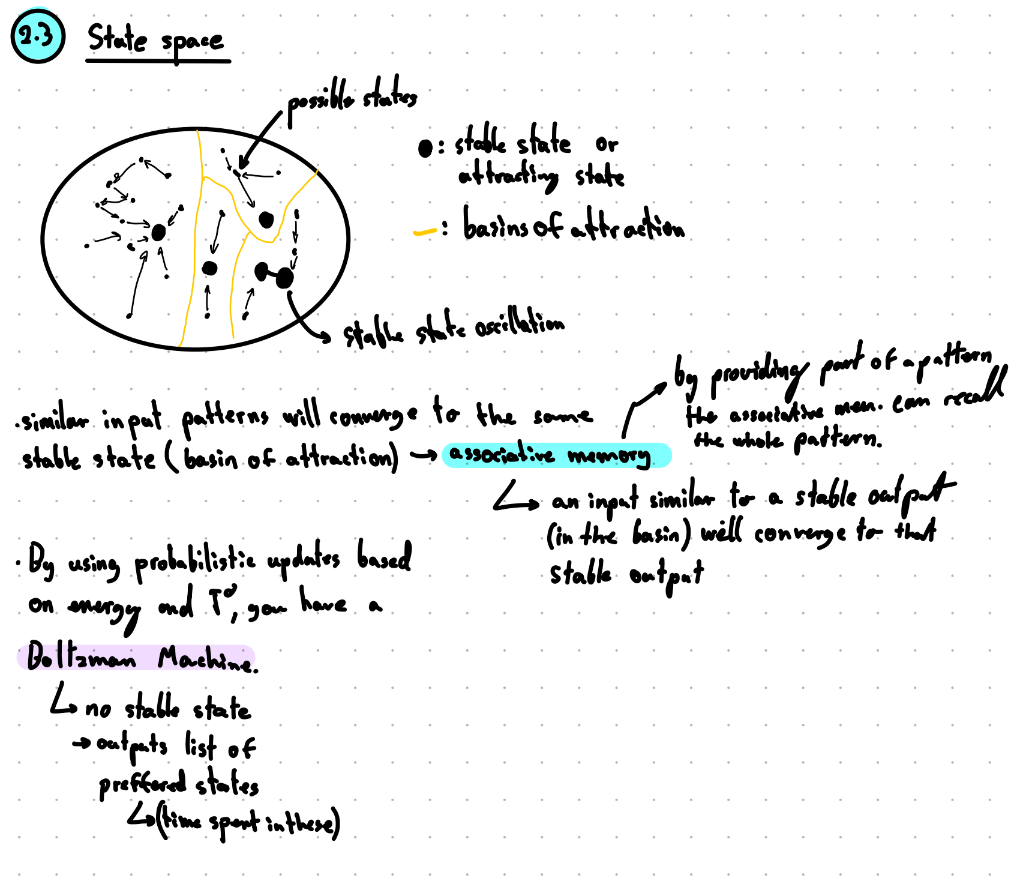 2.3 State space
possible states
●: stable state or
attracting state
—: basins of attraction
stable state oscillation
by providing part of a pattern
the associative mem. can recall
the whole pattern.
·similar input patterns will converge to the same
stable state (basin of attraction) → associative memory
↳ an input similar to a stable output
(in the basin) will converge to that
stable output
· By using probabilistic updates based
on energy and T°, you have a
Boltzman Machine.
↳ no stable state
→ outputs list of
preffered states
↳ (time spent in these)